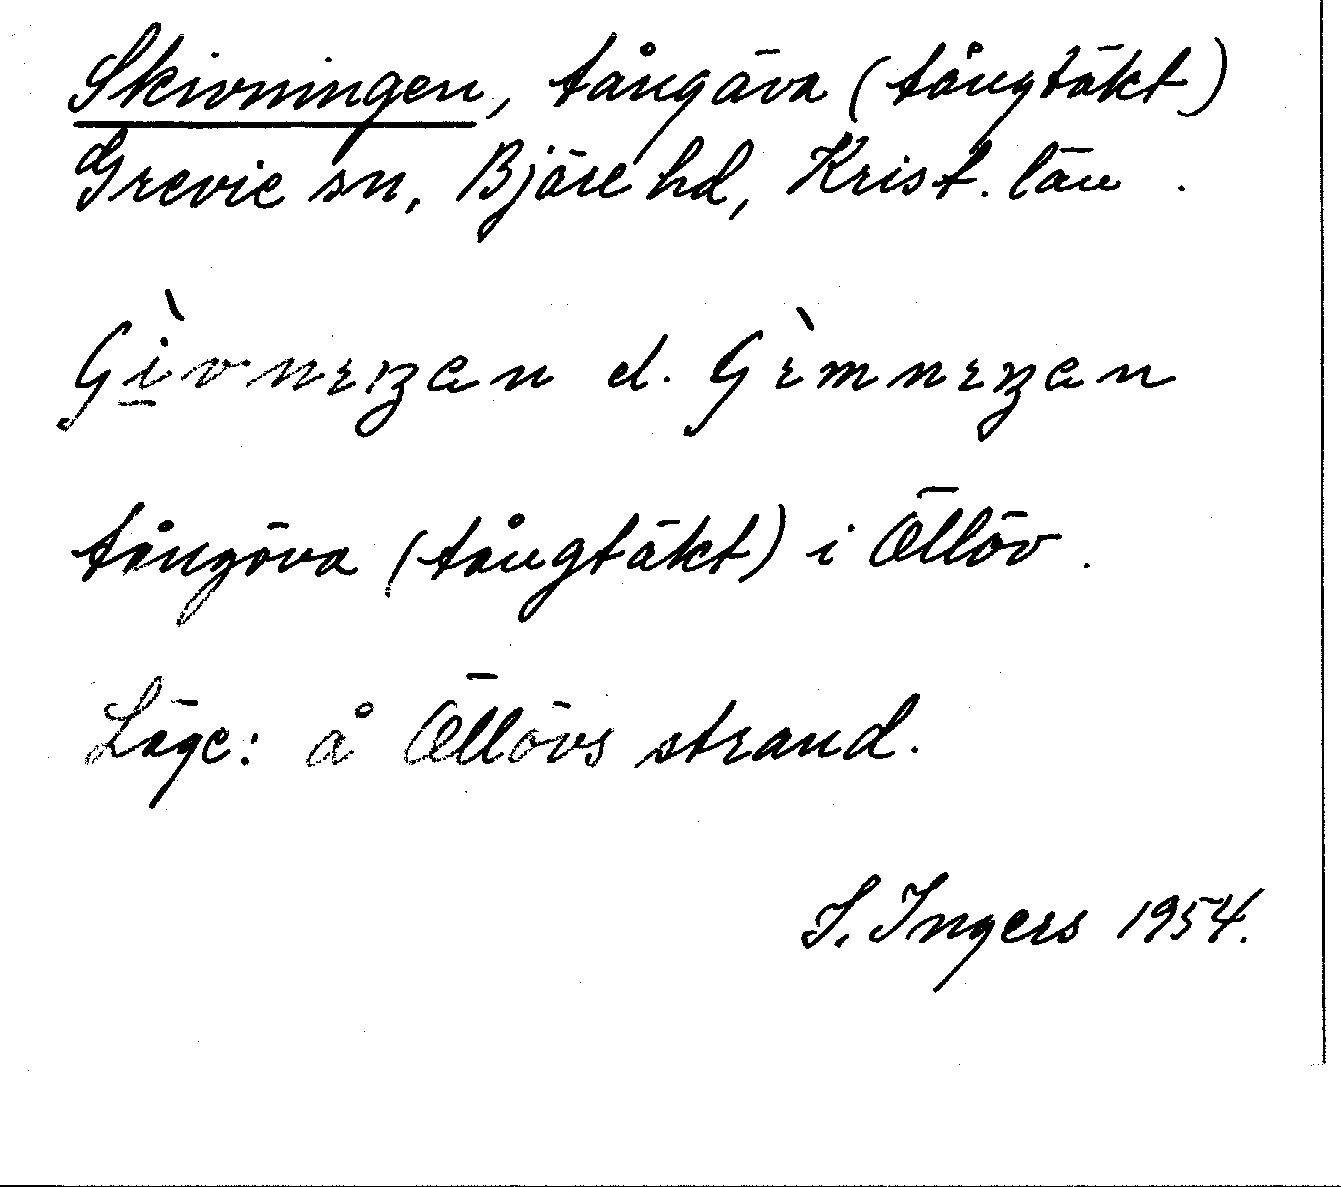 Skivningen, tångäva (tångtäkt)
Grevie sn, Bjäre hd, Krist. län.
tångäva (tångtäkt) i Öllöv.
Läge: å Öllövs strand.
I. Ingers 1954.